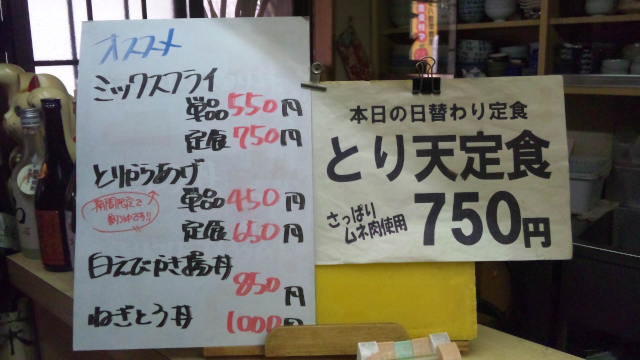 オススメ
ミックスフライ
単品550円
定食750円
とりからあげ
期間限定で
単品450円
定食650円
白えびかき揚丼
850円
ねぎとろ丼
1000円
本日の日替わり定食
とり天定食
さっぱり
ムネ肉使用
750円